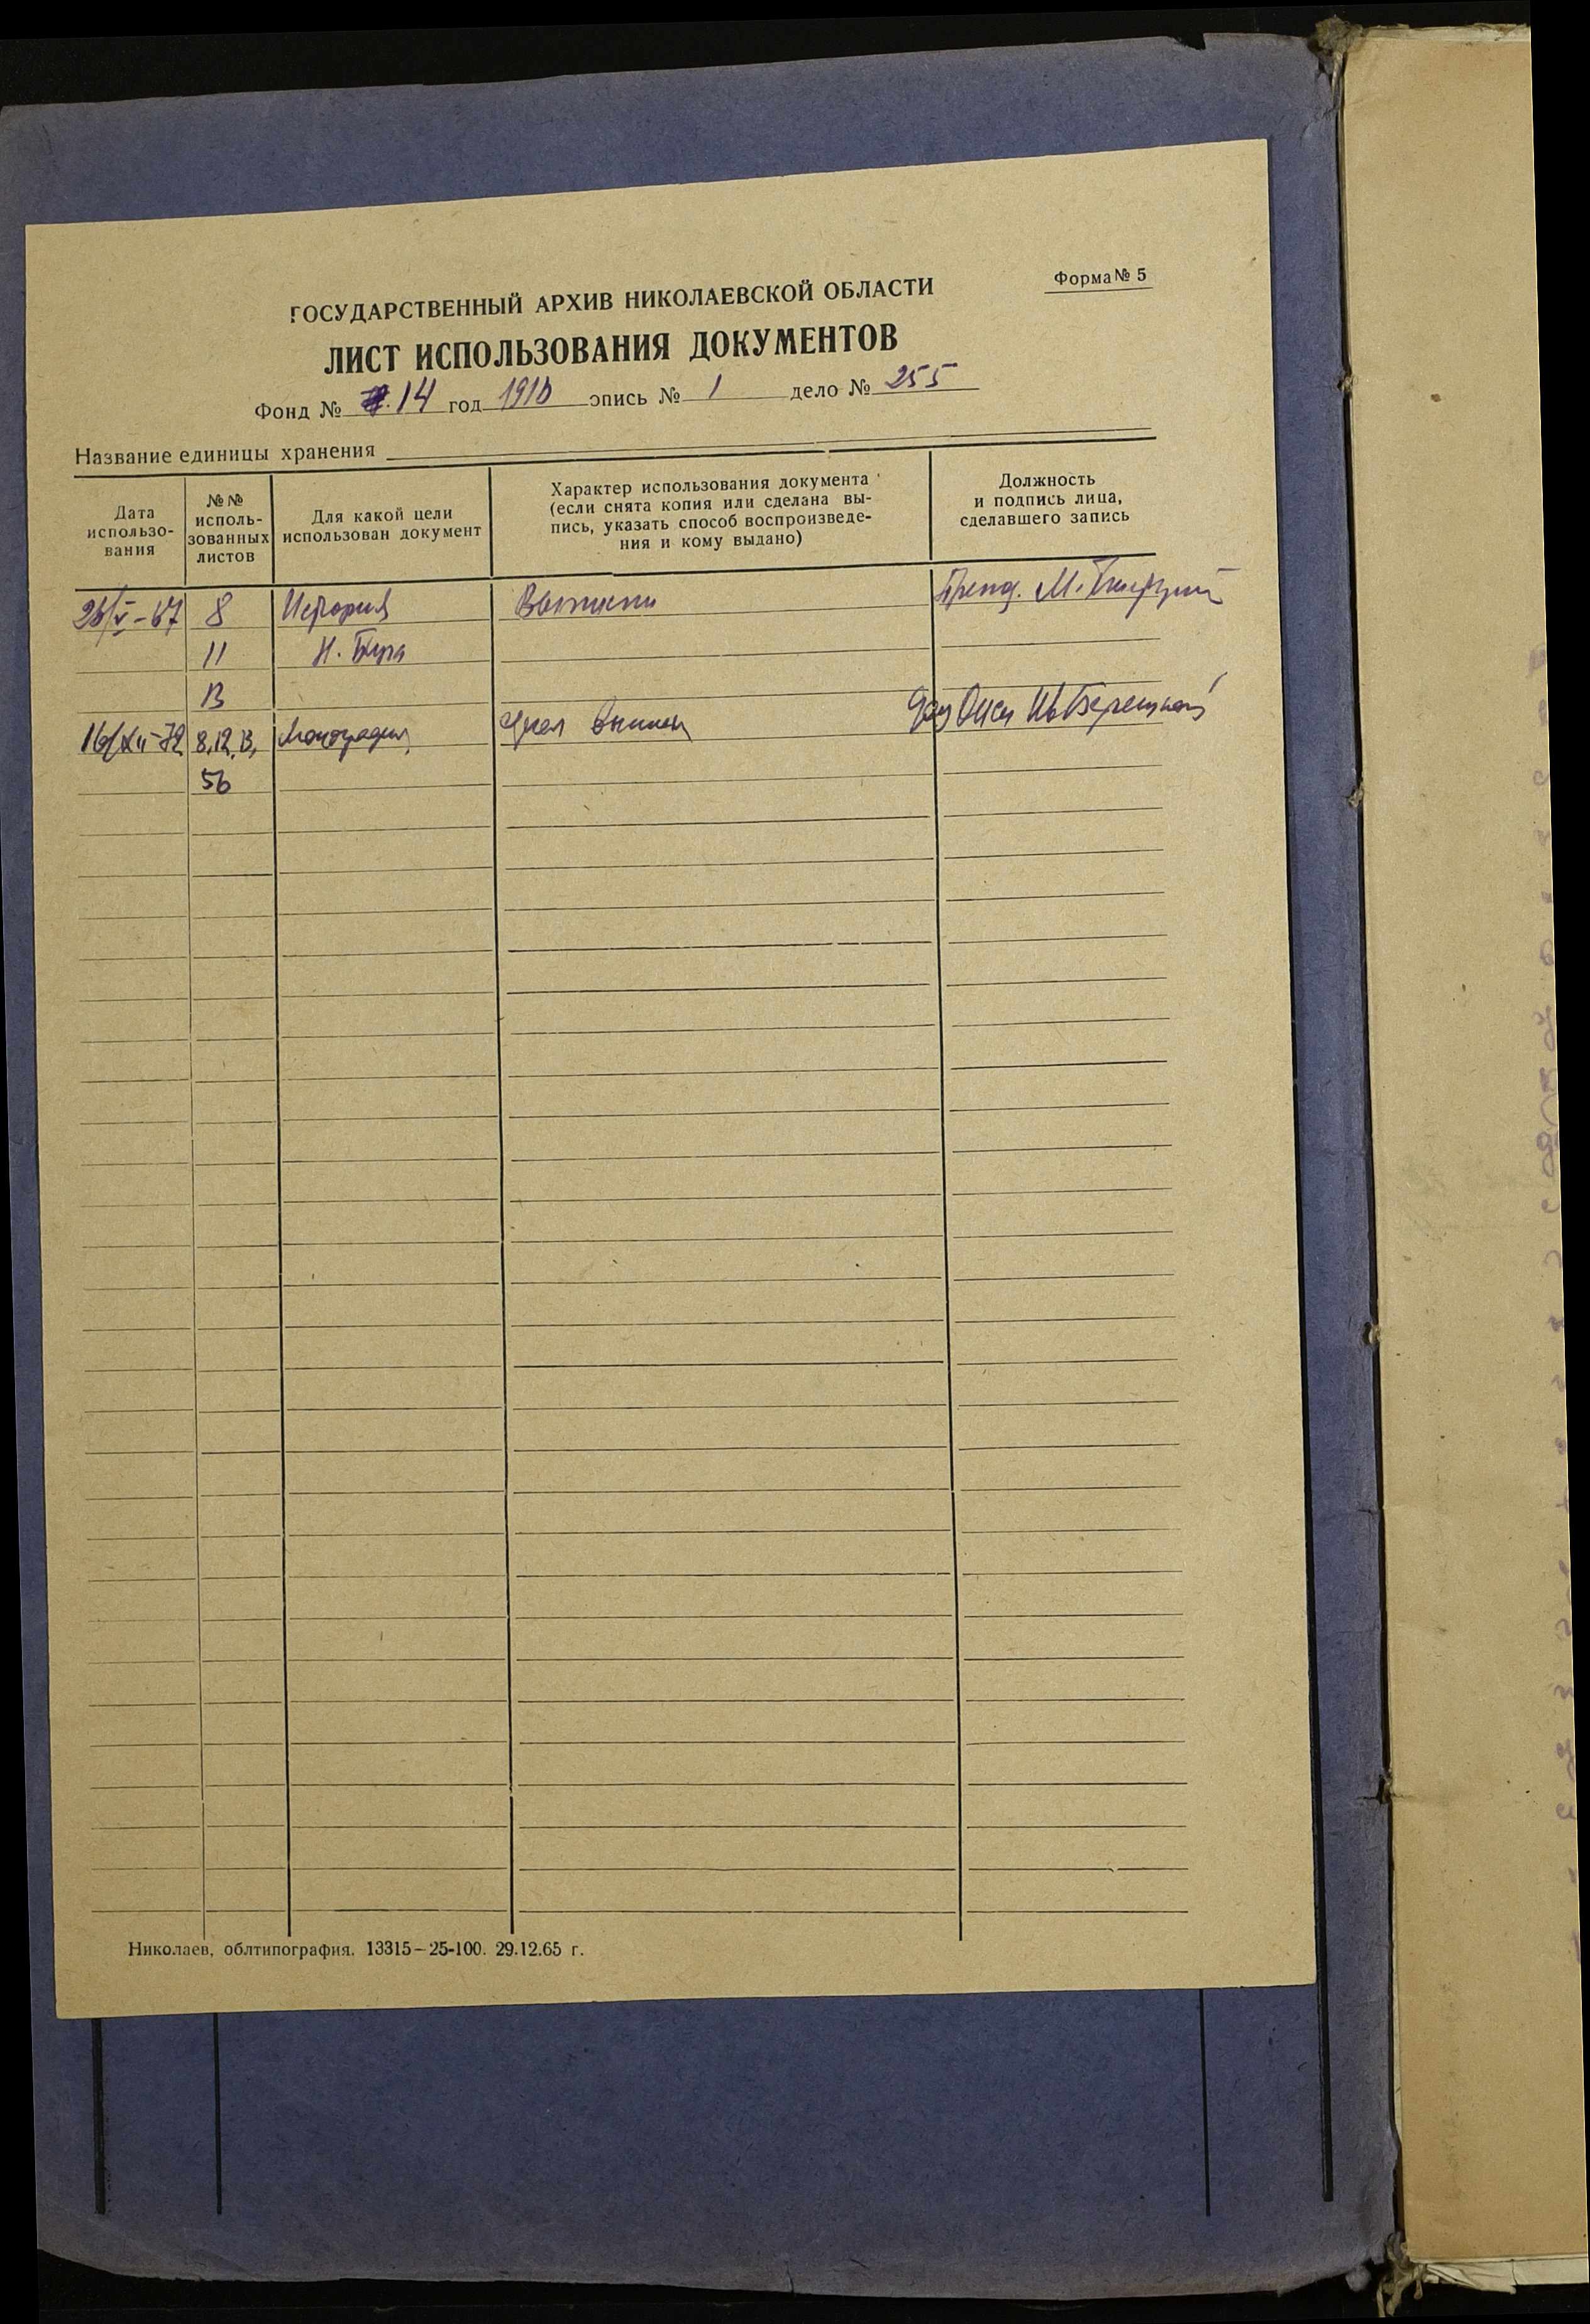 Форма № 5
ГОСУДАРСТВЕННЫЙ АРХИВ НИКОЛАЕВСКОЙ ОБЛАСТИ
ЛИСТ ИСПОЛЬЗОВАНИЯ ДОКУМЕНТОВ
Фонд № 14 год 1910 опись № 1 дело № 255
Название единицы хранения
Дата использо-вания
№№ исполь-зованных листов
Для какой цели использован документ
Характер использования документа
(если снята копия или сделана вы-
пись, указать способ воспроизведе-
ния и кому выдано)
Должность
и подпись лица,
сделавшего запись
26/V-67 8 История Выписки М.
11 Н. Буга
13
16/XII-72 8, 12, 13, Монография
56
Николаев, облтипография. 13315—25-100. 29.12.65 г.